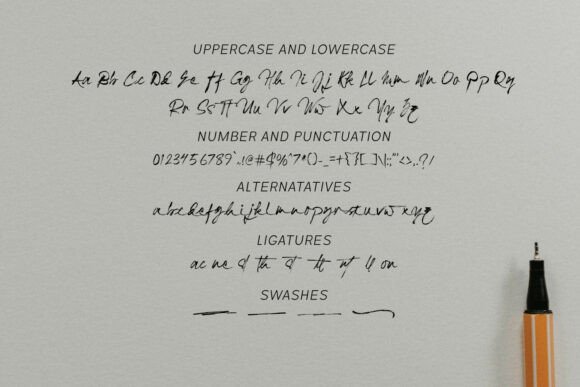 UPPERCASE AND LOWERCASE
Aa Bb Cc Dd Ee Ff Gg Hh Ii Jj Kk Ll Mm Nn Oo Pp Qq
Rr Ss Tt Uu Vv Ww Xx Yy Zz
NUMBER AND PUNCTUATION
0123456789`~!@#$%^7*()-_=+{}[]\|:;"'<>,.?/
ALTERNATATIVES
abcdefghijklmnopqrstuvwxyz
LIGATURES
ac ne
on
SWASHES